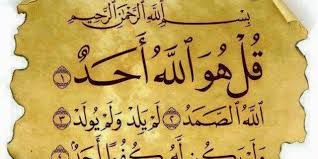 بِسْمِ اللَّهِ الرَّحْمَٰنِ الرَّحِيمِ
قُلْ هُوَ اللَّهُ أَحَدٌ ١
اللَّهُ الصَّمَدُ ٢ لَمْ يَلِدْ وَلَمْ يُولَدْ ٣
وَلَمْ يَكُن لَّهُ كُفُوًا أَحَدٌ ٤